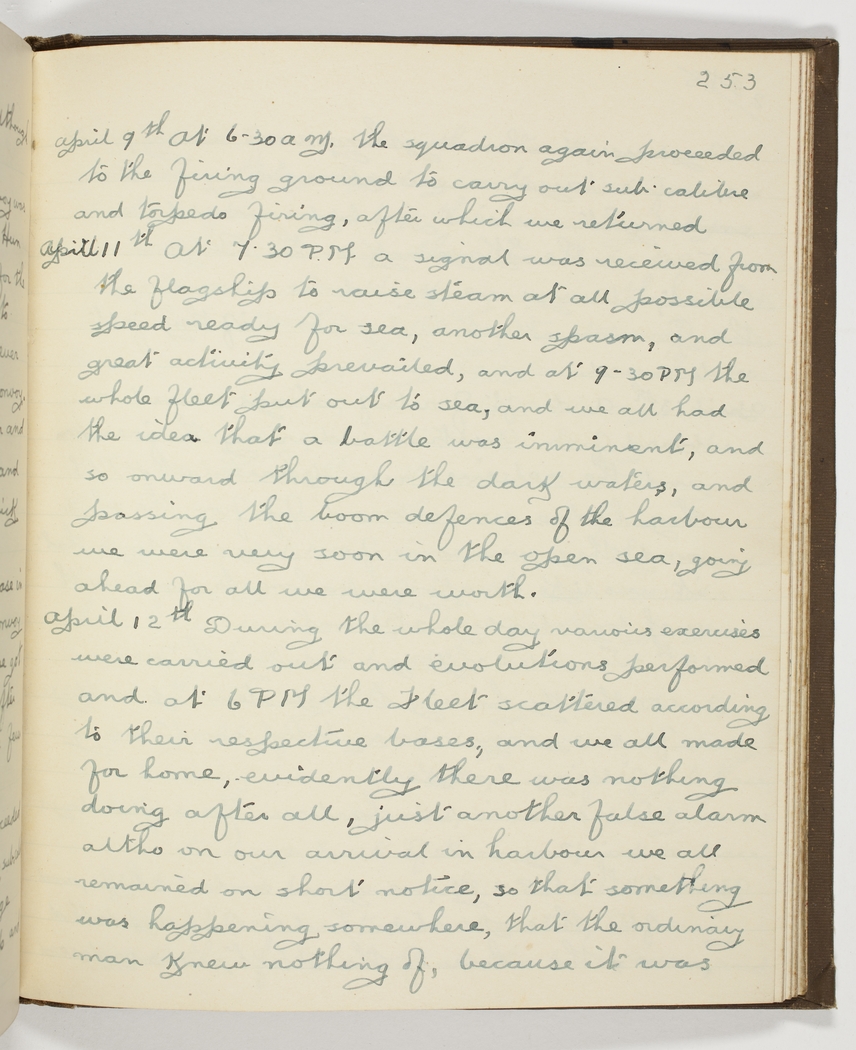 253
April 9th At 6-30 a M. the squadron again proceeded
to the firing ground to carry out sub. calibre
and torpedo firing, after which we returned
April 11th At 7.30 P.M a signal was received from
the flagship to raise steam at all possible
speed ready for sea, another spasm, and
great activity prevailed, and at 9-30 PM the
whole fleet put out to sea, and we all had
the idea that a battle was imminent, and
so onward through the dark waters, and
passing the boom defences of the harbour
we were very soon in the open sea, going
ahead for all we were worth.
April 12th During the whole day various exercises
were carried out and evolutions performed
and at 6 PM the Fleet scattered according
to their respective bases, and we all made
for home, evidently there was nothing
doing after all, just another false alarm
altho on our arrival in harbour we all
remained on short notice, so that something
was happening somewhere, that the ordinary
man knew nothing of, because it was